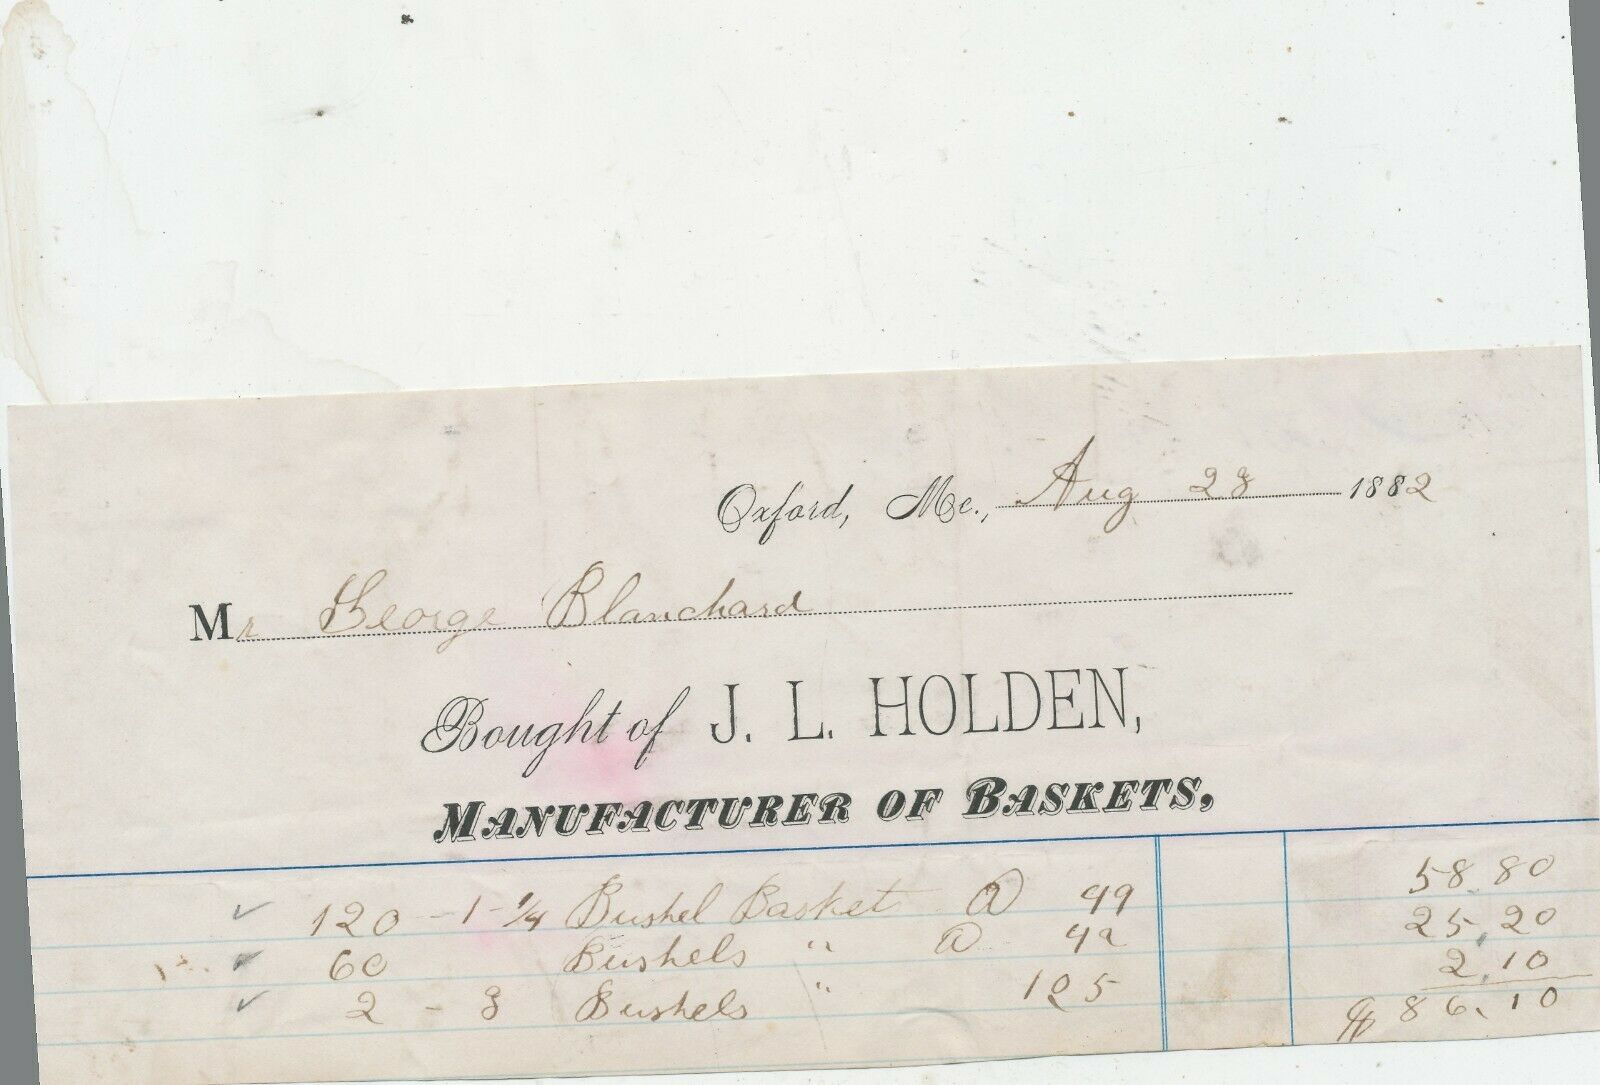 Oxford, Me., Aug 23 1882
Mr George Blanchard
Bought of J. L. HOLDEN,
MANUFACTURER OF BASKETS,
✓ 120 - 1-1/4 Bushel Basket @ 49 58.80
✓ 60 Bushels " @ 42 25.20
✓ 2 - 3 Bushels " 105 2.10
$ 86.10